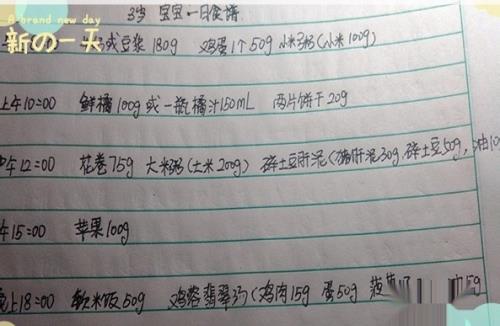 A brand new day
新の一天
3岁 宝宝一日食谱
或豆浆 180g 鸡蛋1个50g 小米粥(小米100g)
上午10:00 鲜橘100g或一瓶橘汁150mL 两片饼干20g
午12:00 花卷75g 大米粥(大米200g) 碎土豆肝泥(猪肝泥30g,碎土豆50g,油10
午15:00 苹果100g
晚上18:00 软米饭50g 鸡蓉翡翠汤(鸡肉15g 蛋50g 菠菜 5g